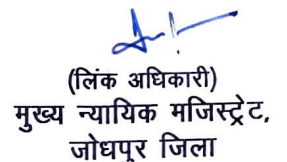 (लिंक अधिकारी)
मुख्य न्यायिक मजिस्ट्रेट,
जोधपुर जिला